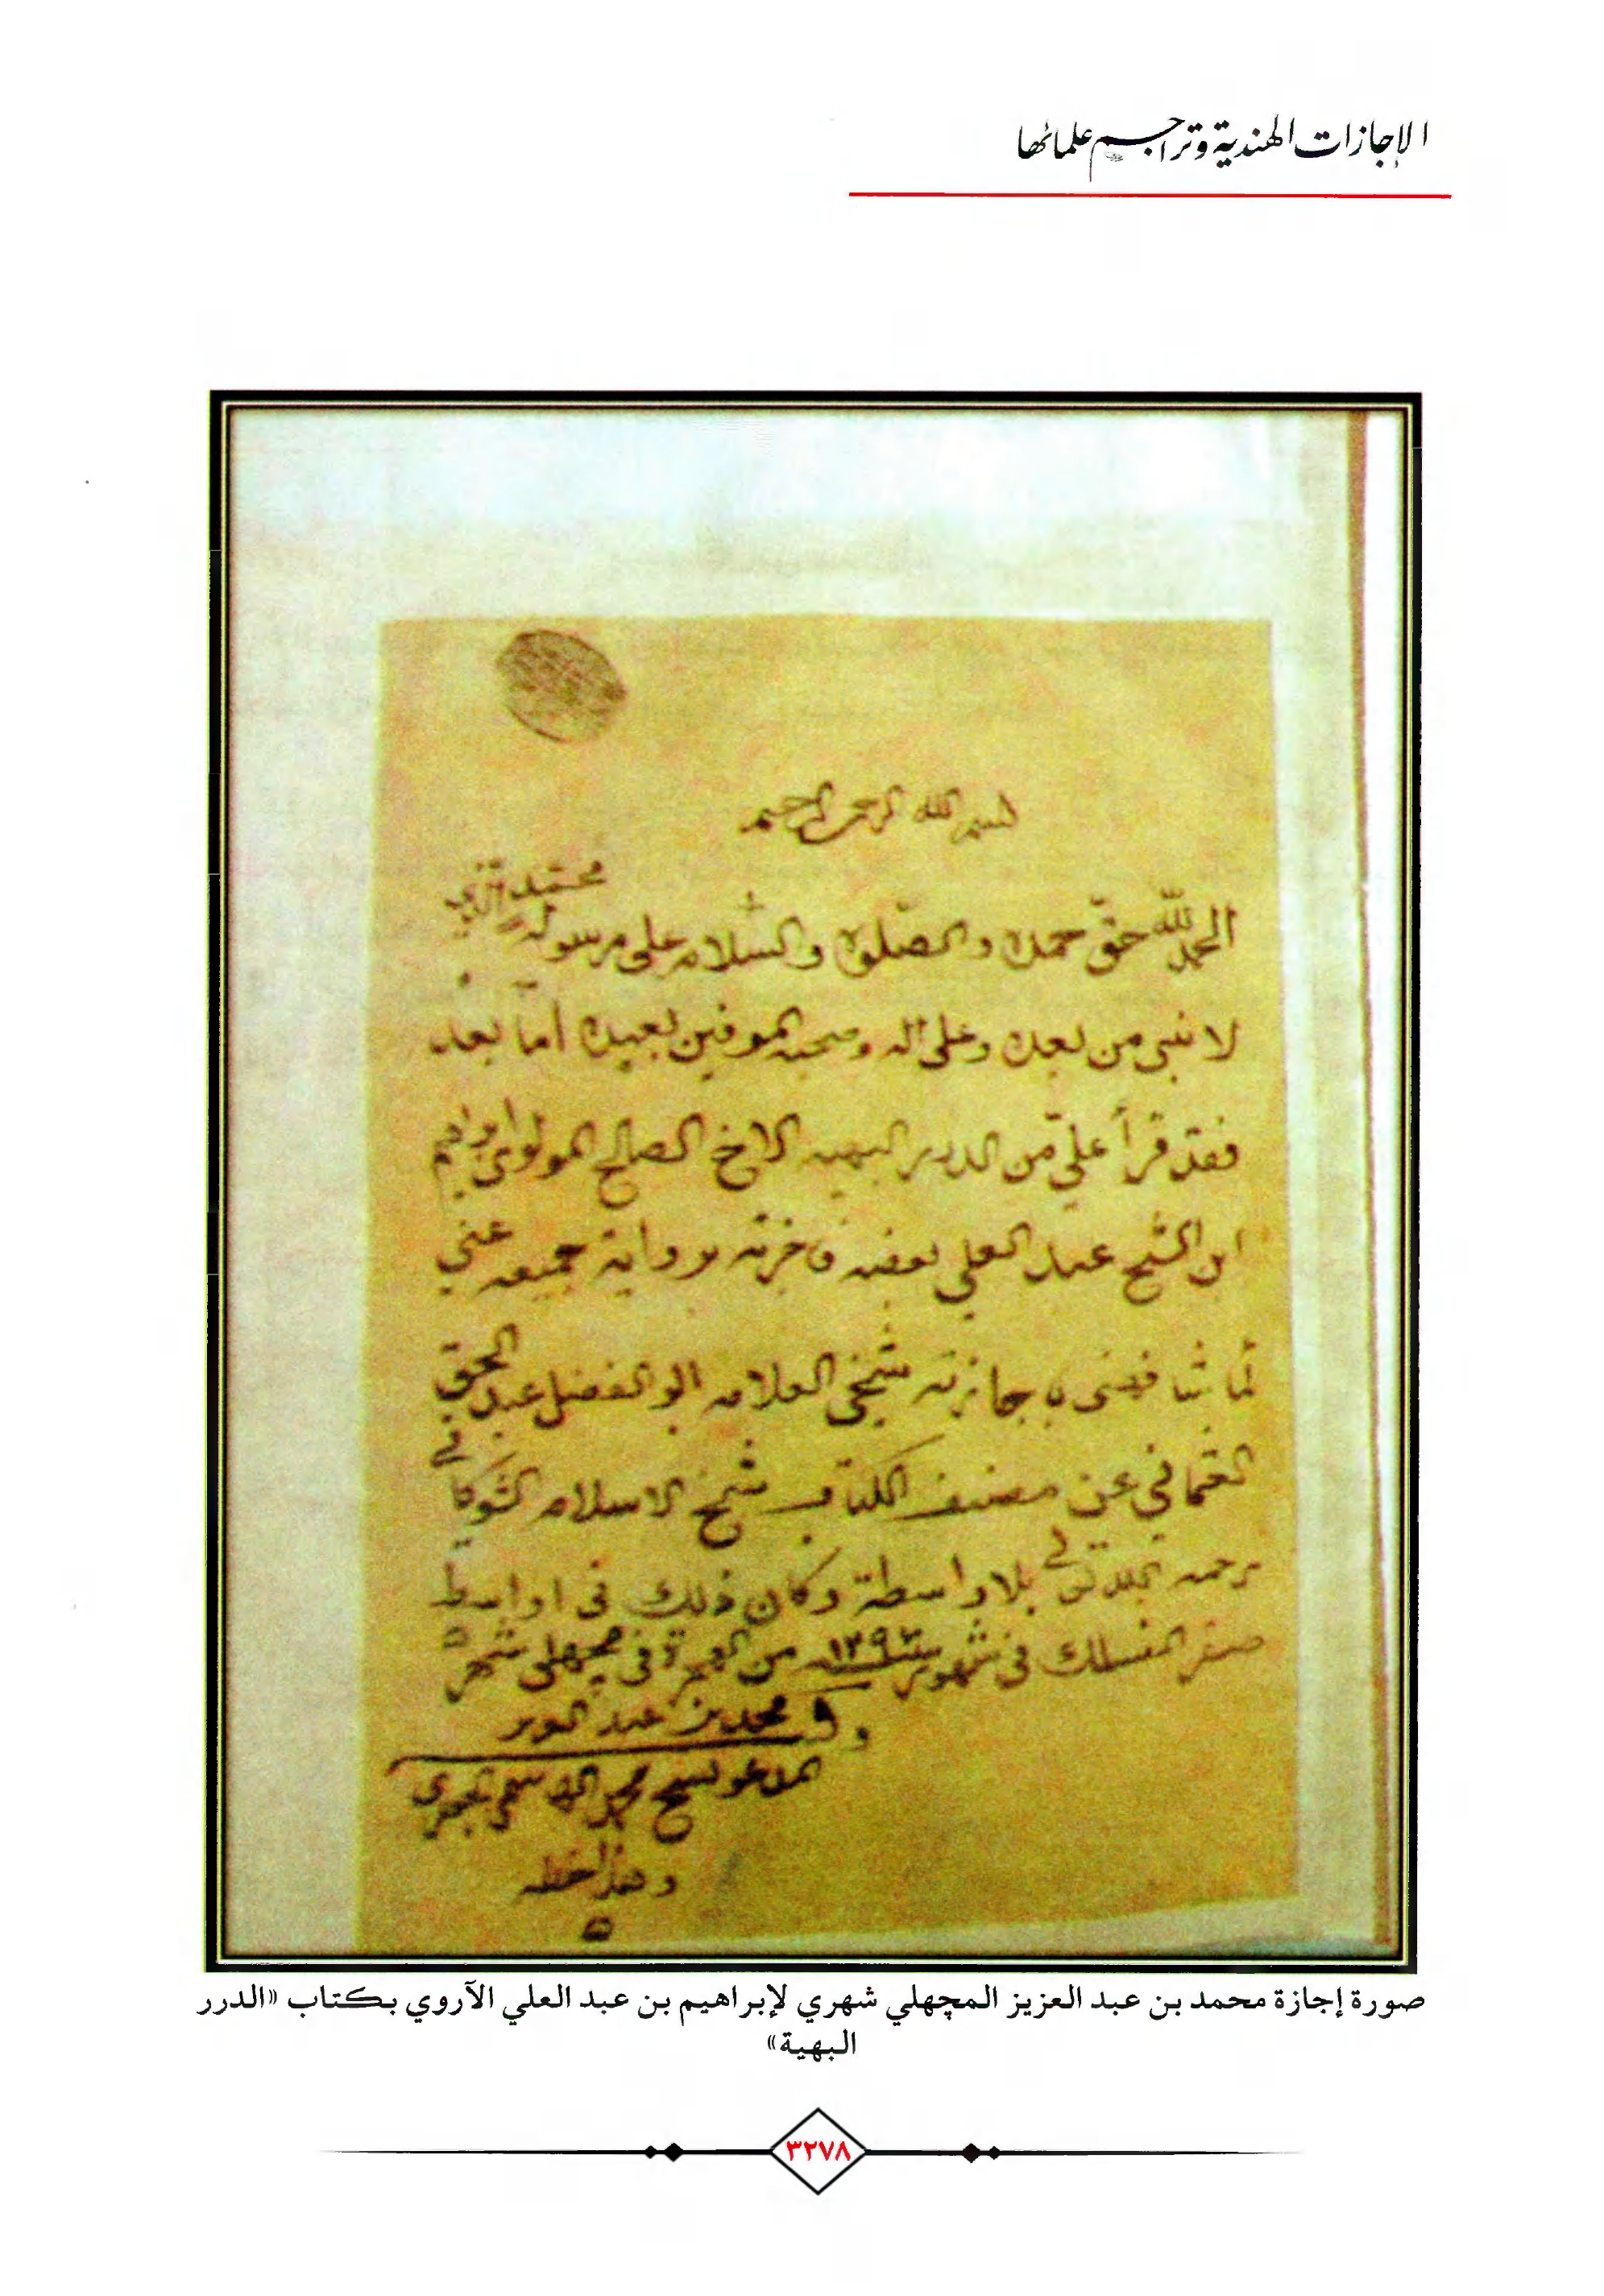 الإجازات الهندية وتراجم علمائها
بسم الله الرحمن الرحيم
الحمد لله حق حمده والصلوة والسلام على رسوله محمد الذي
لا نبي من بعده وعلى اله وصحبه الموفين بعهده اما بعد
فقد قرأ علي من الدرر البهيه الاخ الصالح المولوي ابراهيم
ابن الشيخ عبد العلي بعضه فاجزته برواية جميعه عني
كما شافهني باجازته شيخي العلامه ابو الفضل عبد الحق
العثماني عن مصنف الكتاب شيخ الاسلام الشوكاني
رحمه الله تعالى بلا واسطة وكان ذلك في اواسط
صفر المنسلك في شهور سنة ١٢٩٣ من الهجرة في مچهلي شهر
محمد بن عبد العزيز
المدعو بشيخ محمد
وهذا خطه
صورة إجازة محمد بن عبد العزيز المچهلي شهري لإبراهيم بن عبد العلي الآروي بكتاب «الدرر
البهية»
٣٢٧٨